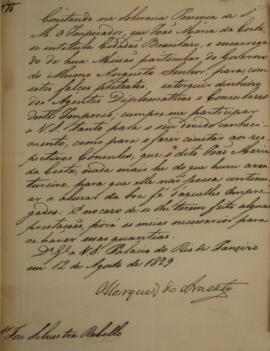 Constando na Soberana Presença de S.
M. O Imperador, que José Maria da Costa
se intitula Cidadão Brasileiro, e encarrega
do de hua Missão particular do Governo
do Mesmo Augusto Senhor, para, com
estes falsos pretextos, extorquir dinheiros
dos Agentes Diplomaticos e Consulares
deste Imperio, cumpre-me participar
a V.S. tanto para o seu devido conheci-
mento, como para o fazer constar aos res
pectivos Consules, que o dito José Maria
da Costa, nada mais he do que hum aven-
tureiro, para que elle não possa continu-
ar a abusar da boa fé d'aquelles Empre-
gados. E no caso de se lhe terem feito alguma
prestação, para os meios necessarios para
se haver essas quantias.
D.s G.e a V.S. Palacio do Rio de Janeiro
em 12 de Agosto de 1829
Marquez do Aracaty
Sr. José Silvestre Rebello